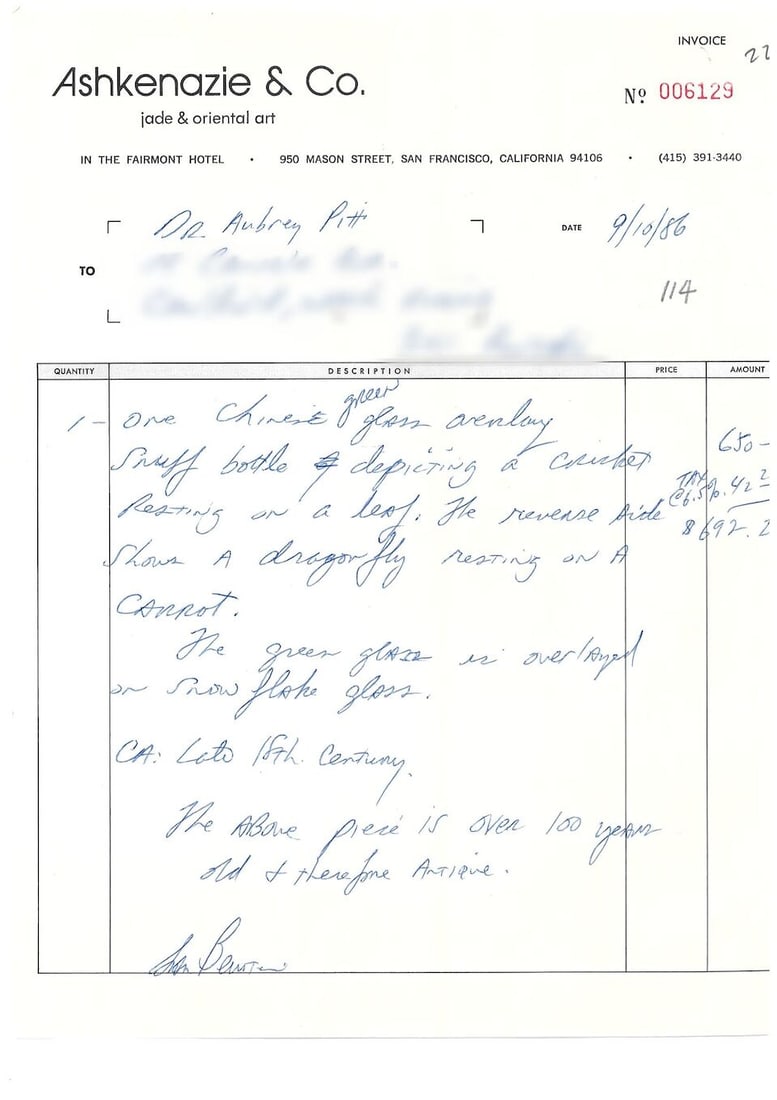 INVOICE
22
Ashkenazie & Co.
Nº 006129
jade & oriental art
IN THE FAIRMONT HOTEL • 950 MASON STREET, SAN FRANCISCO, CALIFORNIA 94106 • (415) 391-3440
Dr. Aubrey Pitt
DATE 9/10/86
TO
114
QUANTITY DESCRIPTION PRICE AMOUNT
green
1 - One Chinese glass overlay
650-
Snuff bottle depicting a cricket
TAX
@6.5%. 42 2
Resting on a leaf. The reverse side
$692.2
Shows A dragonfly resting on A
CARROT.
The green glass is overlayed
on Snow flake glass.
CA: Late 18th. Century.
The ABove piece is over 100 years
old & therefore Antique.